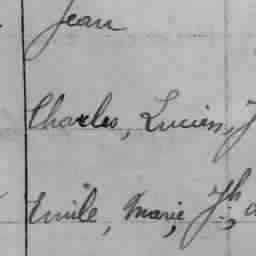 Jean
Charles, Lucien, J
Emile, Marie, Jh,